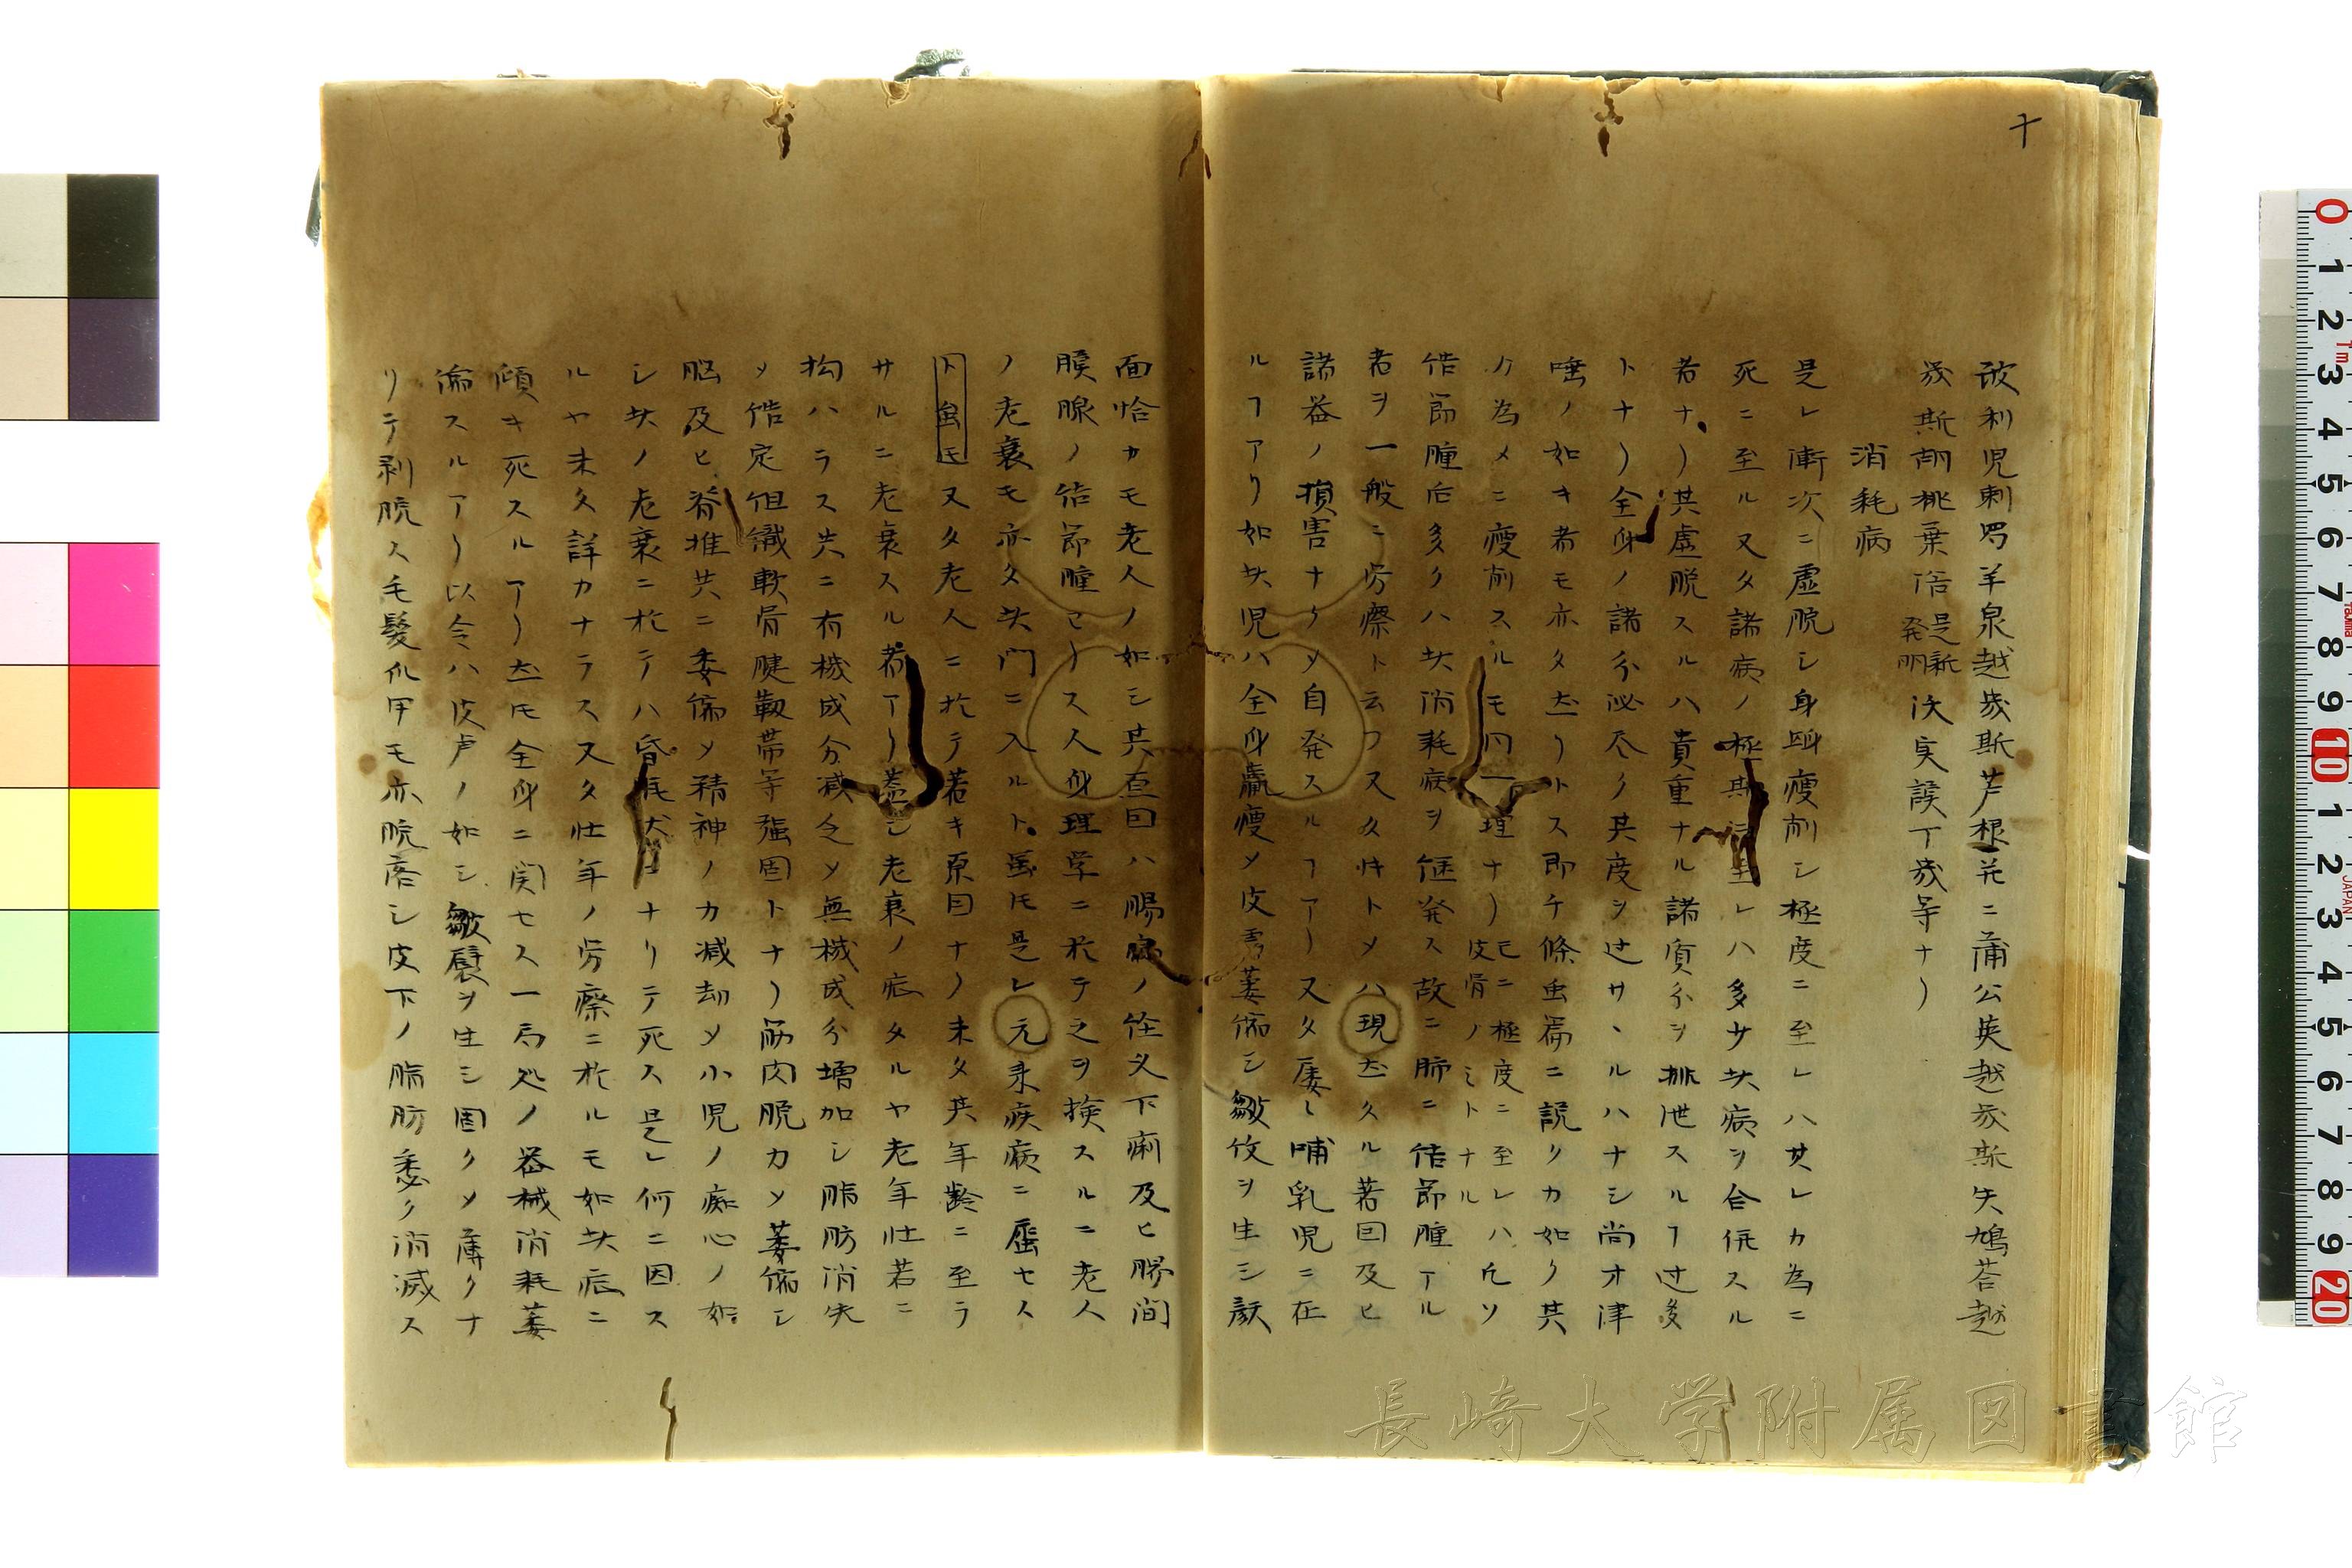 十
設利児刺罗羊泉越幾斯芦根并ニ蒲公英越幾斯失鳩荅越
幾斯胡桃葉倍是新発明次実謨丁幾等ナリ
消耗病
是レ漸次ニ虚脱シ身体瘦削シ極度ニ至レハ其レカ為ニ
死ニ至ル又タ諸病ノ極期ニ至レハ多サ此病ヲ合併スル
者ナリ其虚脱スルハ貴重ナル諸液分ヲ排泄スルヿ过多
トナリ全身ノ諸分泌尽ク其度ヲ过サヽルハナシ尚オ津
唾ノ如キ者モ亦タ然リトス即チ條虫篇ニ説クカ如ク其
カ為メニ瘦削スルモ同一理ナリ已ニ極度ニ至レハ皮骨ノミトナル凡ソ
結節腫后多クハ此消耗病ヲ継発ス故ニ肺ニ結節腫アル
者ヲ一般ニ労瘵ト云フ又タ件トメハ現然タル著因及ヒ
諸器ノ損害ナクメ自発スルヿアリ又タ屡〻哺乳児ニ在
ルヿアリ如此児ハ全身羸瘦メ皮膚萎縮シ皺紋ヲ生シ顔
面恰カモ老人ノ如シ其原因ハ腸病ノ経久下痢及ヒ腸間
膜腺ノ結節腫ナリス人身理学ニ於テ之ヲ検スルニ老人
ノ老衰モ亦タ此門ニ入ルト虽モ是レ元来疾病ニ属セス
ト虽モ又タ老人ニ於テ若キ原因ナリ未タ其年齢ニ至ラ
サルニ老衰スル者アリ蓋シ老衰ノ症タルヤ老年壮若ニ
拘ハラス共ニ有機成分减令メ無機成分増加シ脂肪消失
メ結定但織軟骨腱靱帯等强固トナリ筋肉脱カメ萎縮シ
脳及ヒ脊椎共ニ委縮メ精神ノカ减却メ小児ノ痴心ノ如
シ此ノ老衰ニ於テハ昏眠状トナリテ死ス是レ何ニ因ス
ルヤ未タ詳カナラス又タ壮年ノ労瘵ニ於ルモ如此症ニ
傾キ死スルアリ然モ全身ニ関セス一局処ノ器械消耗萎
縮スルアリ以令ハ皮膚ノ如シ皺襞ヲ生シ固クメ薄クナ
リテ剥脱ス毛髪爪甲モ亦脱落シ皮下ノ脂肪悉ク消滅ス
長崎大学附属図書館